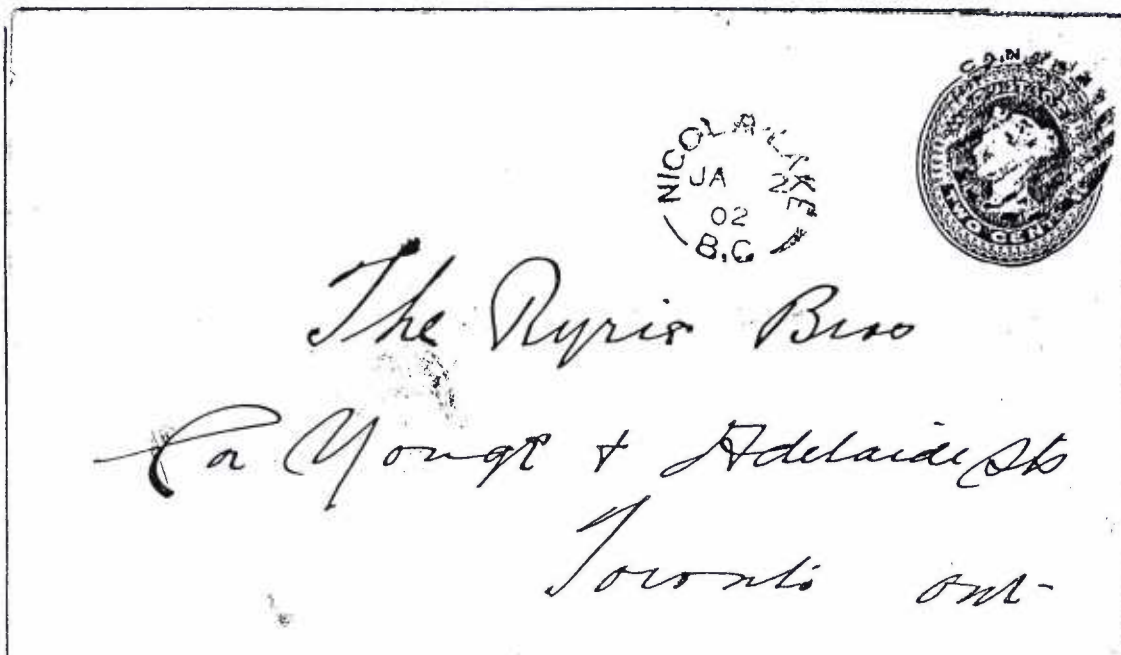 NICOLA LAKE
JA 2
02
B.C.
TWO CENTS
The Ryrie Bros
Cor Yonge + Adelaide Sts
Toronto Ont-